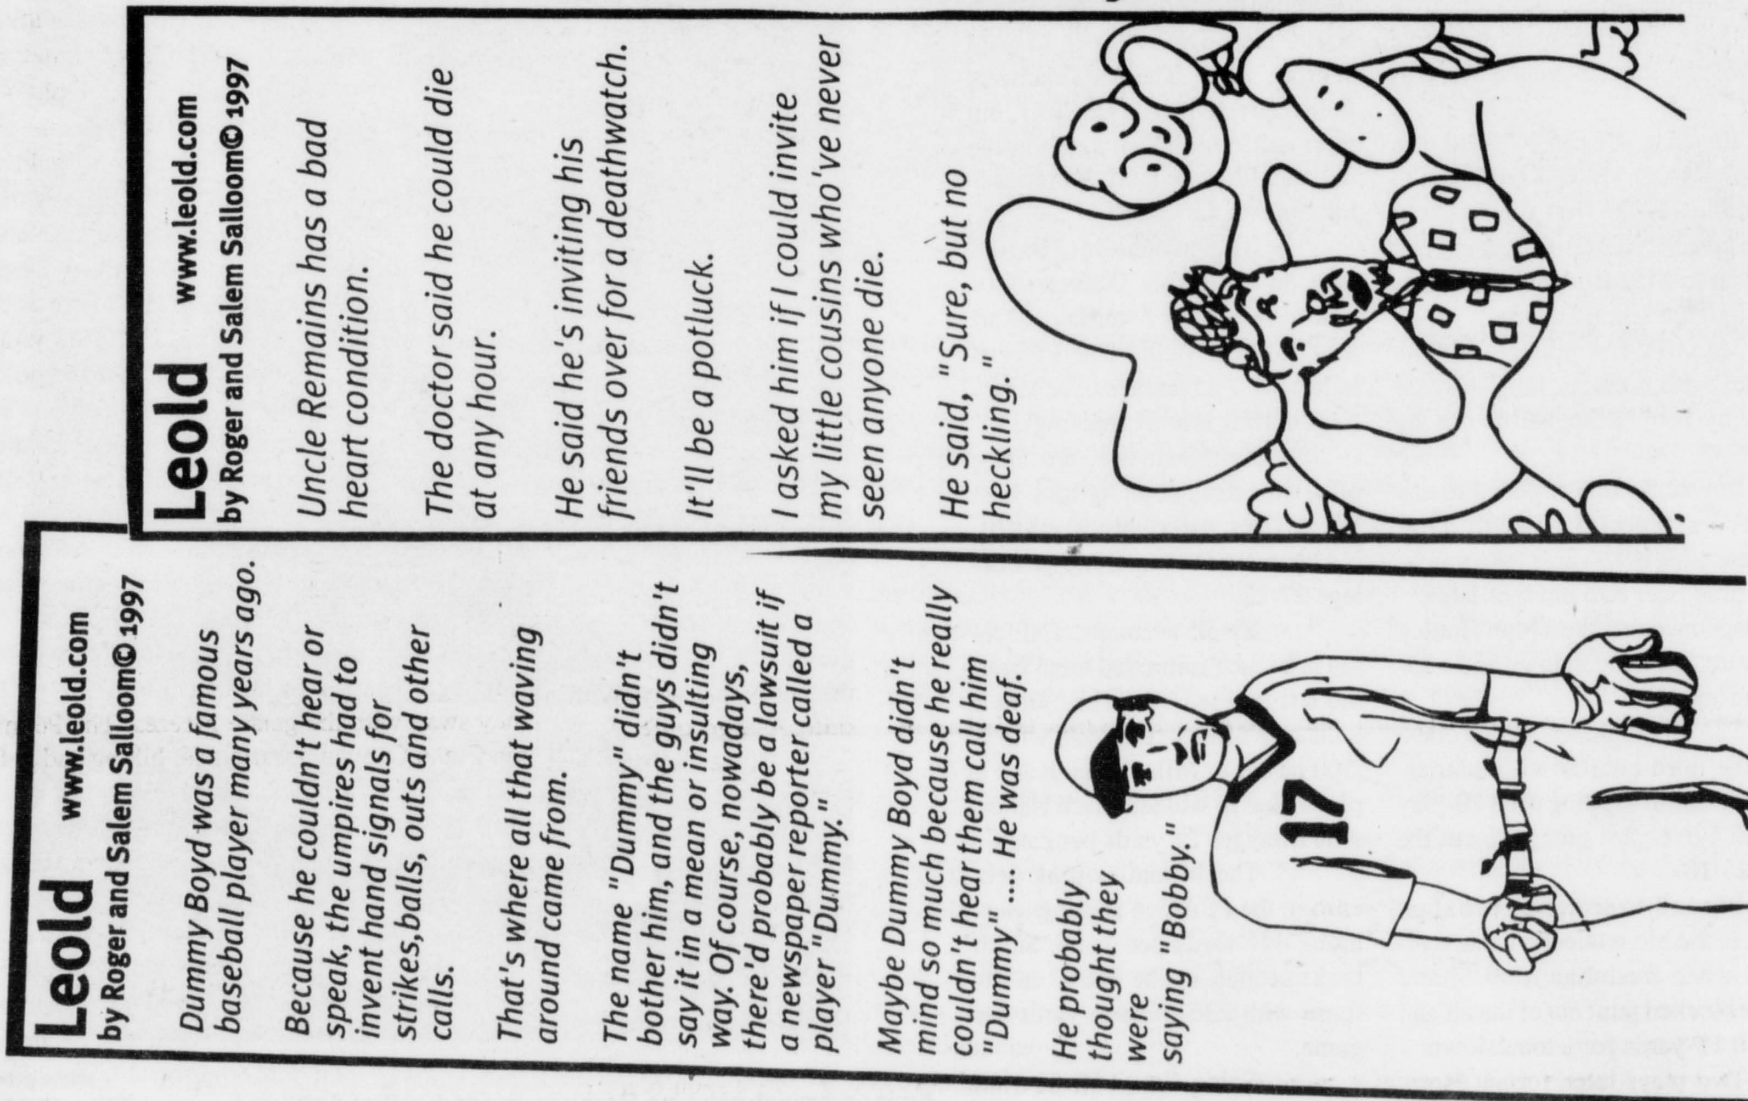 Leold www.leold.com
by Roger and Salem Salloom© 1997
Dummy Boyd was a famous
baseball player many years ago.
Because he couldn't hear or
speak, the umpires had to
invent hand signals for
strikes,balls, outs and other
calls.
That's where all that waving
around came from.
The name "Dummy" didn't
bother him, and the guys didn't
say it in a mean or insulting
way. Of course, nowadays,
there'd probably be a lawsuit if
a newspaper reporter called a
player "Dummy."
Maybe Dummy Boyd didn't
mind so much because he really
couldn't hear them call him
"Dummy" .... He was deaf.
He probably
thought they
were
saying "Bobby."
17
Leold www.leold.com
by Roger and Salem Salloom© 1997
Uncle Remains has a bad
heart condition.
The doctor said he could die
at any hour.
He said he's inviting his
friends over for a deathwatch.
It"ll be a potluck.
I asked him if I could invite
my little cousins who've never
seen anyone die.
He said, "Sure, but no
heckling."